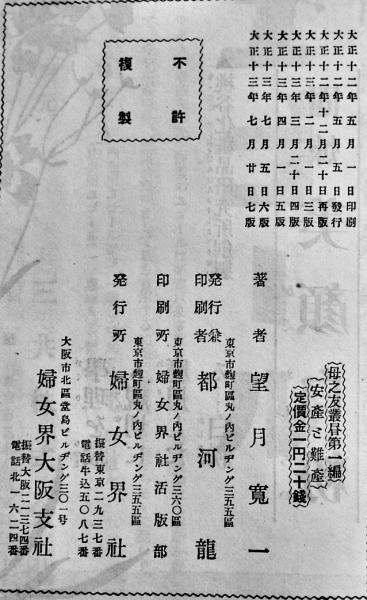 大正十二年五月一日印刷
大正十二年五月五日發行
大正十二年十二月二十日再版
大正十三年二月一日三版
大正十三年三月二十日四版
大正十三年四月一日五版
大正十三年七月五日六版
大正十三年七月廿日七版
不許
複製
母之友叢書第一編
安產と難產
定價金一円二十錢
著者 望月寬一
東京市麴町區丸ノ內ビルヂング三五五區
發行兼印刷者 都河龍
東京市麴町區丸ノ內ビルヂング三六〇區
印刷所 婦女界社活版部
東京市麴町區丸ノ內ビルヂング三五五區
発行所 婦女界社
振替東京二九三七番
電話牛込五〇八七番
大阪市北區堂島ビルヂング三〇一号
婦女界大阪支社
振替大阪二一三七四番
電話北一六二四番